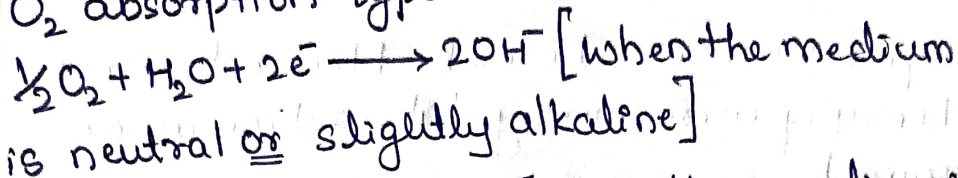 O₂ absorption
½O₂ + H₂O + 2e⁻ ⟶ 2OH⁻ [when the medium
is neutral or slightly alkaline]